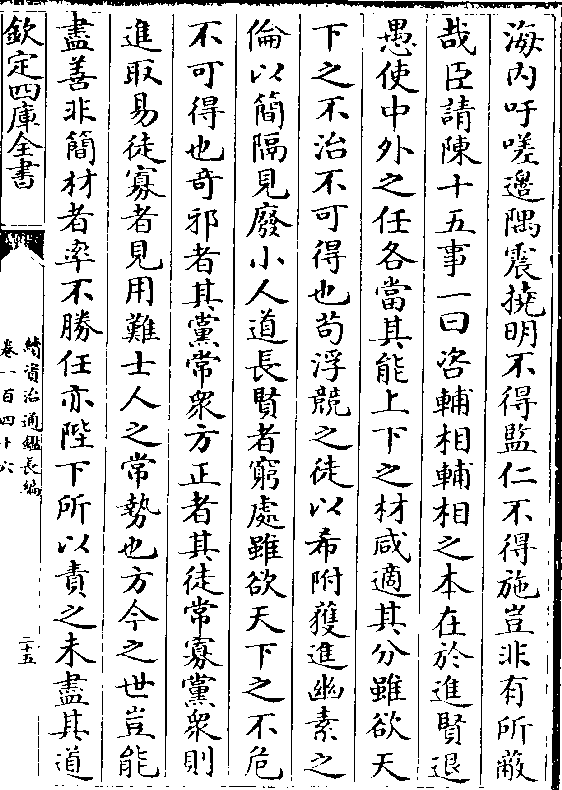 海内吁嗟邉隅震撓明不得監仁不得施豈非有所蔽
哉臣請陳十五事一曰咨輔相輔相之本在於進賢退
愚使中外之任各當其能上下之材咸適其分雖欲天
下之不治不可得也茍浮競之徒以希附獲進幽素之
倫以簡隔見廢小人道長賢者窮處雖欲天下之不危
不可得也竒邪者其黨常衆方正者其徒常寡黨衆則
進取易徒寡者見用難士人之常勢也方今之世豈能
盡善非簡材者率不勝任亦陛下所以責之未盡其道
欽定四庫全書
續資治通鑑長編
卷一百四十六
二十五